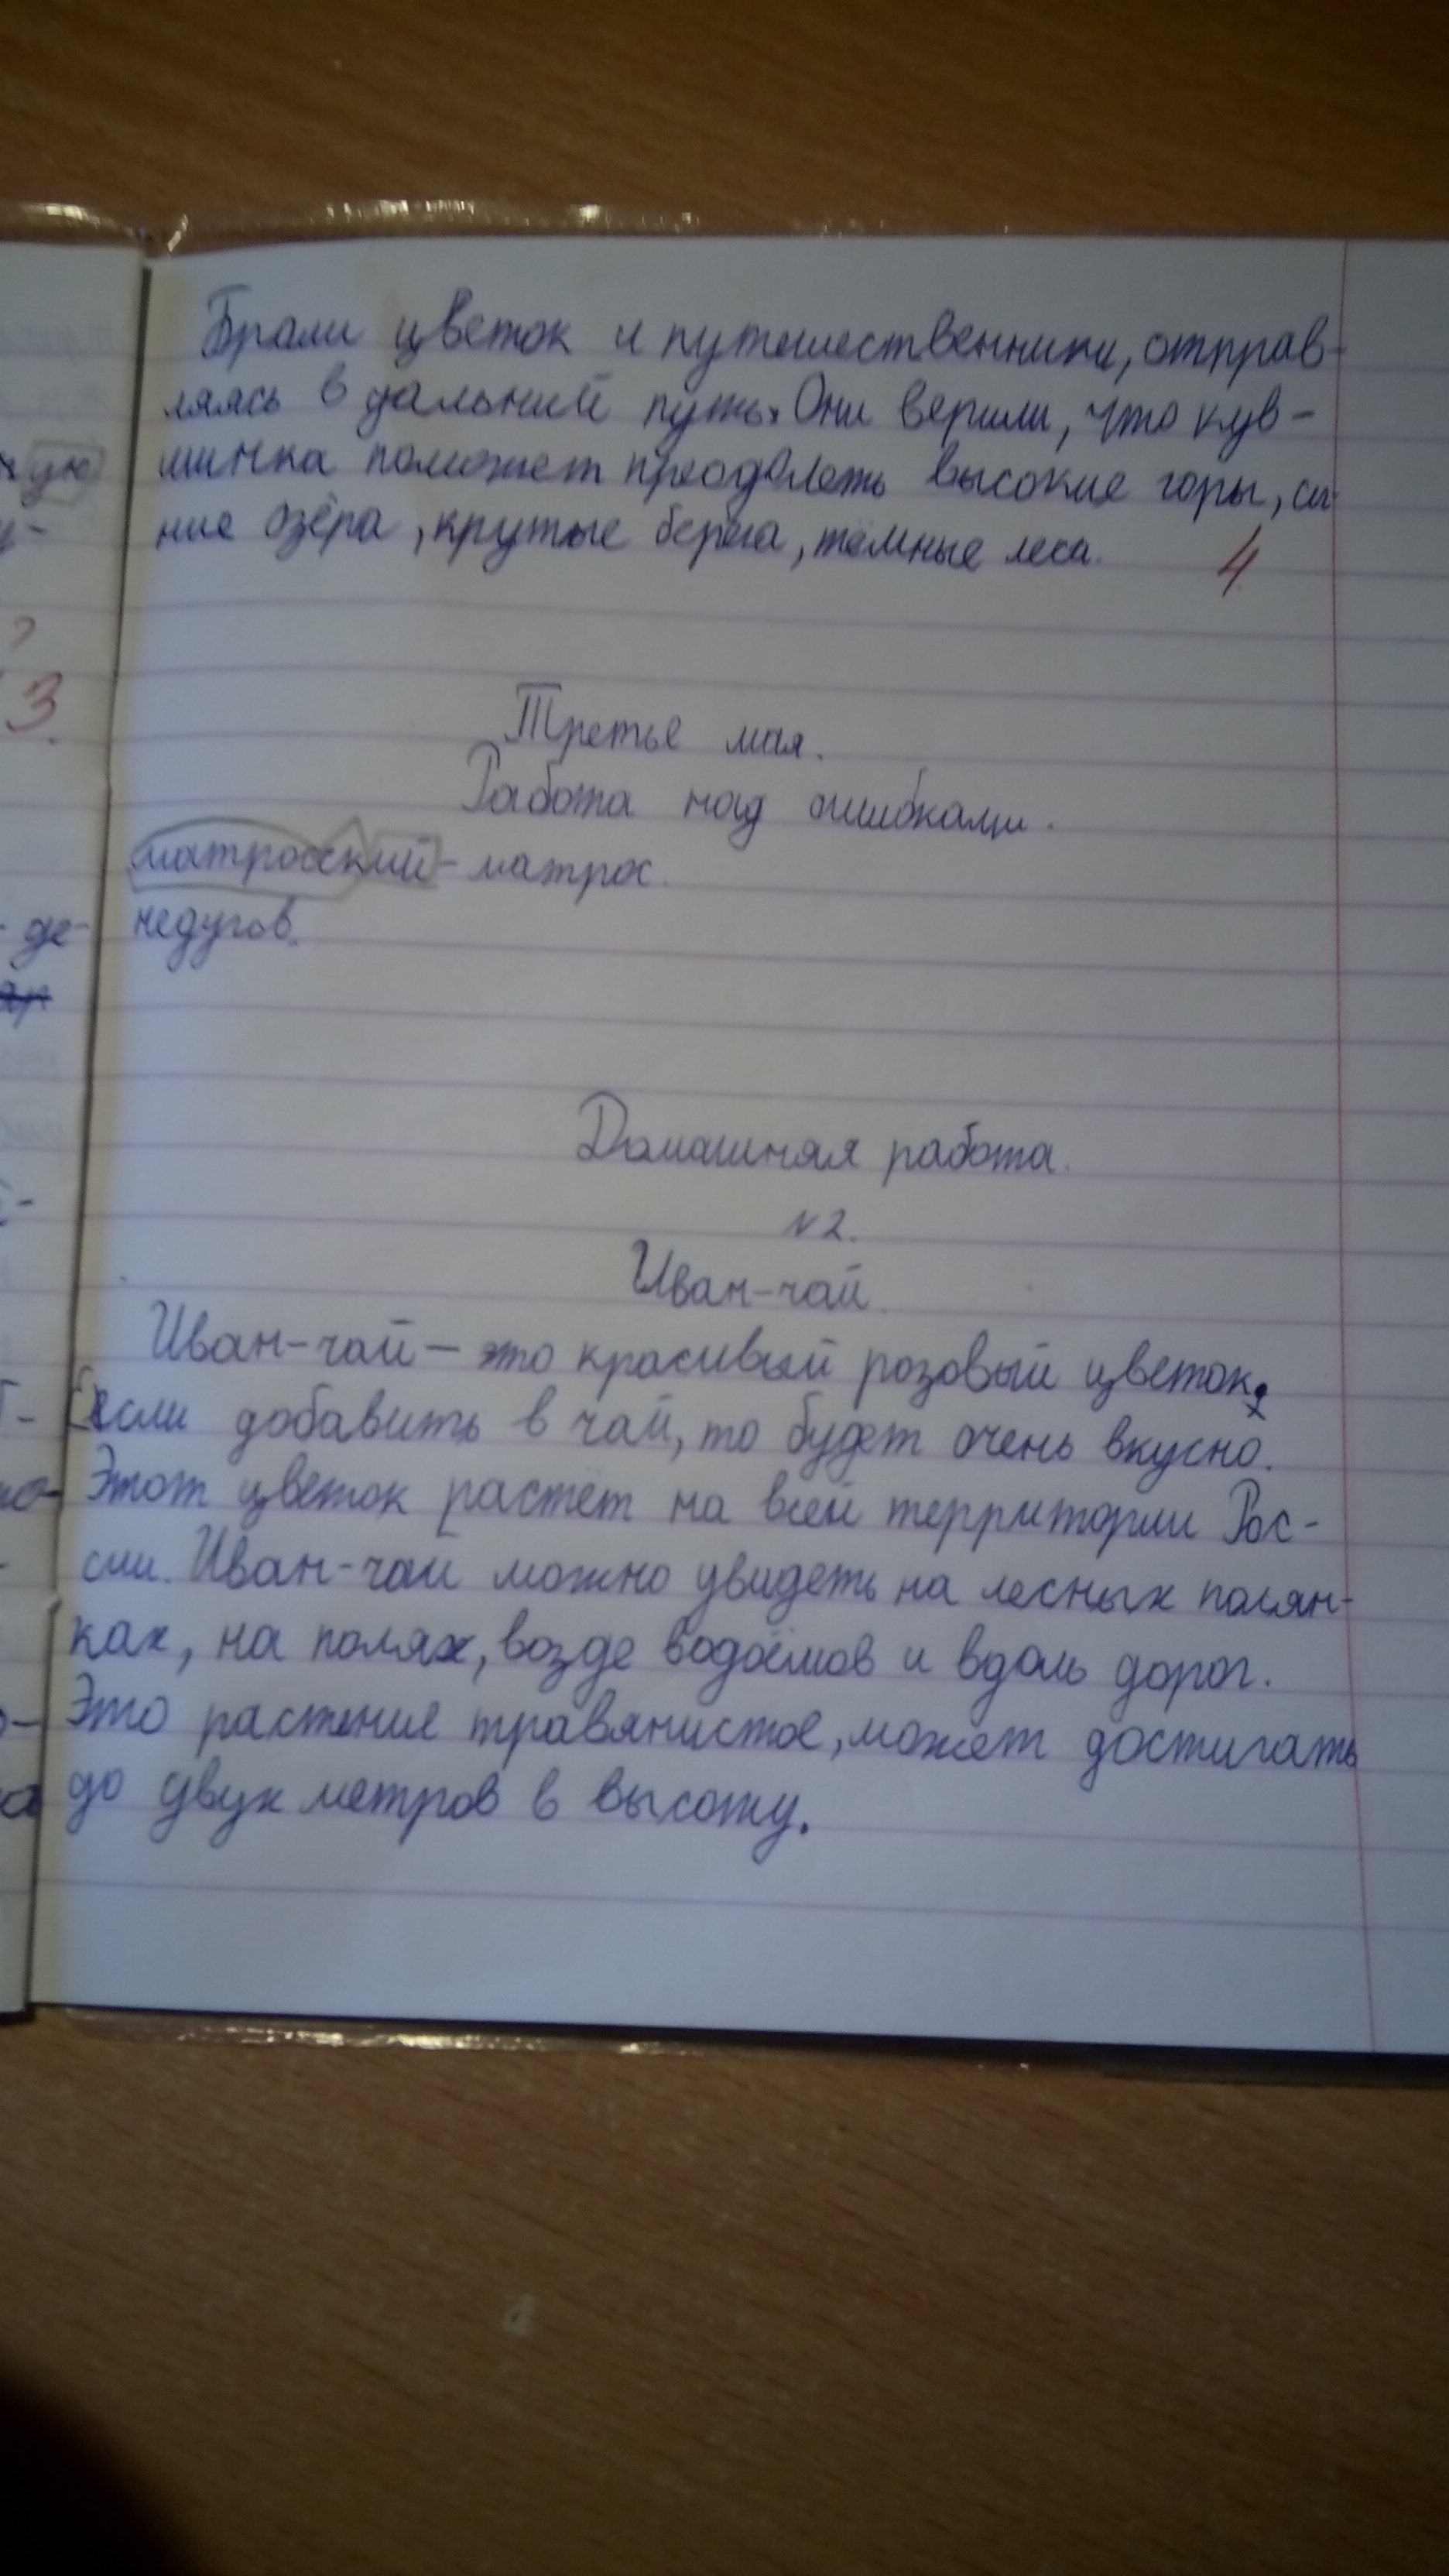 Брали цветок и путешественники, отправ-
ляясь в дальний путь. Они верили, что кув-
шинка поможет преодолеть высокие горы, си
ние озёра, крутые берега, тёмные леса.
4
ую
у-
?
3.
Третье мая.
Работа над ошибками.
матросский - матрос.
де-
недугов.
Домашняя работа.
№2.
Иван-чай.
Иван-чай - это красивый розовый цветок.
Если добавить в чай, то будет очень вкусно.
Этот цветок растёт на всей территории Рос-
сии. Иван-чай можно увидеть на лесных полян-
ках, на полях, возде водоёмов и вдоль дорог.
Это растение травянистое, может достигать
до двух метров в высоту.